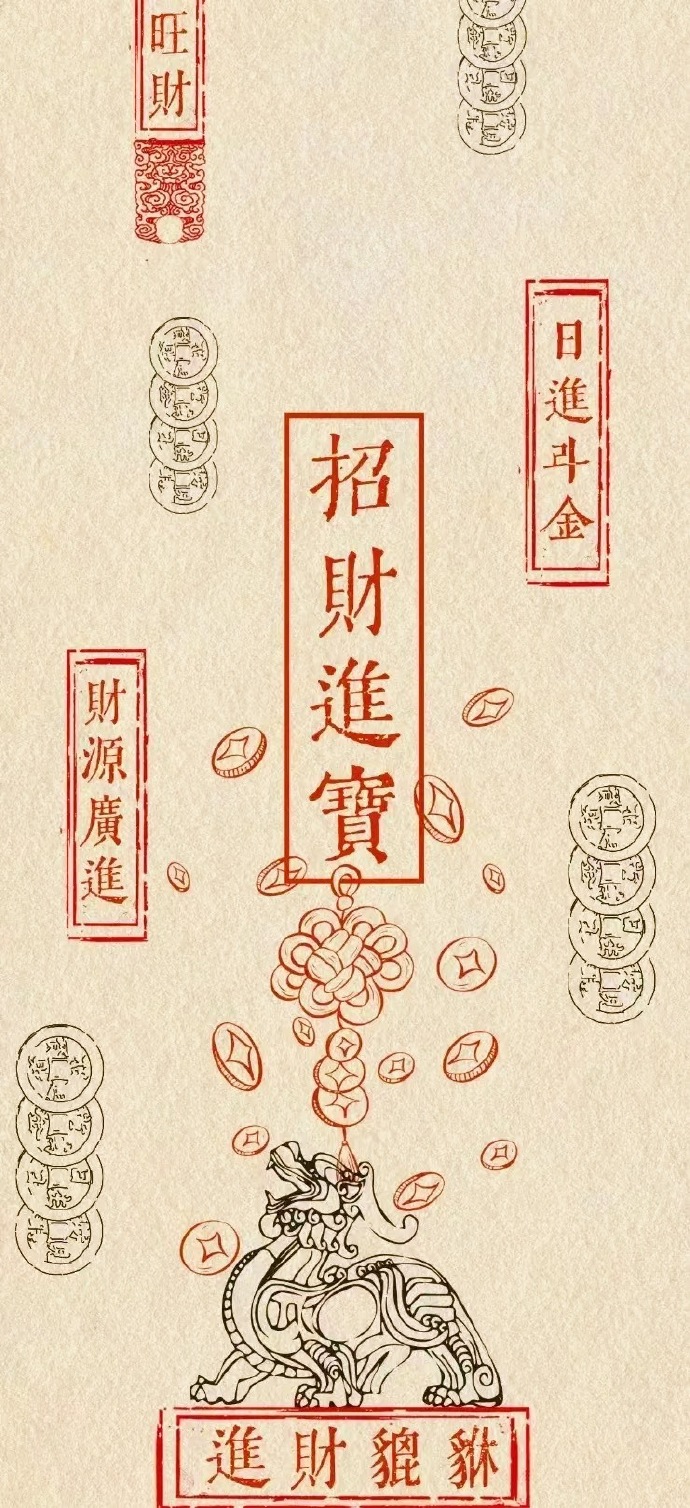 旺財
日進斗金
招財進寶
財源廣進
進財貔貅